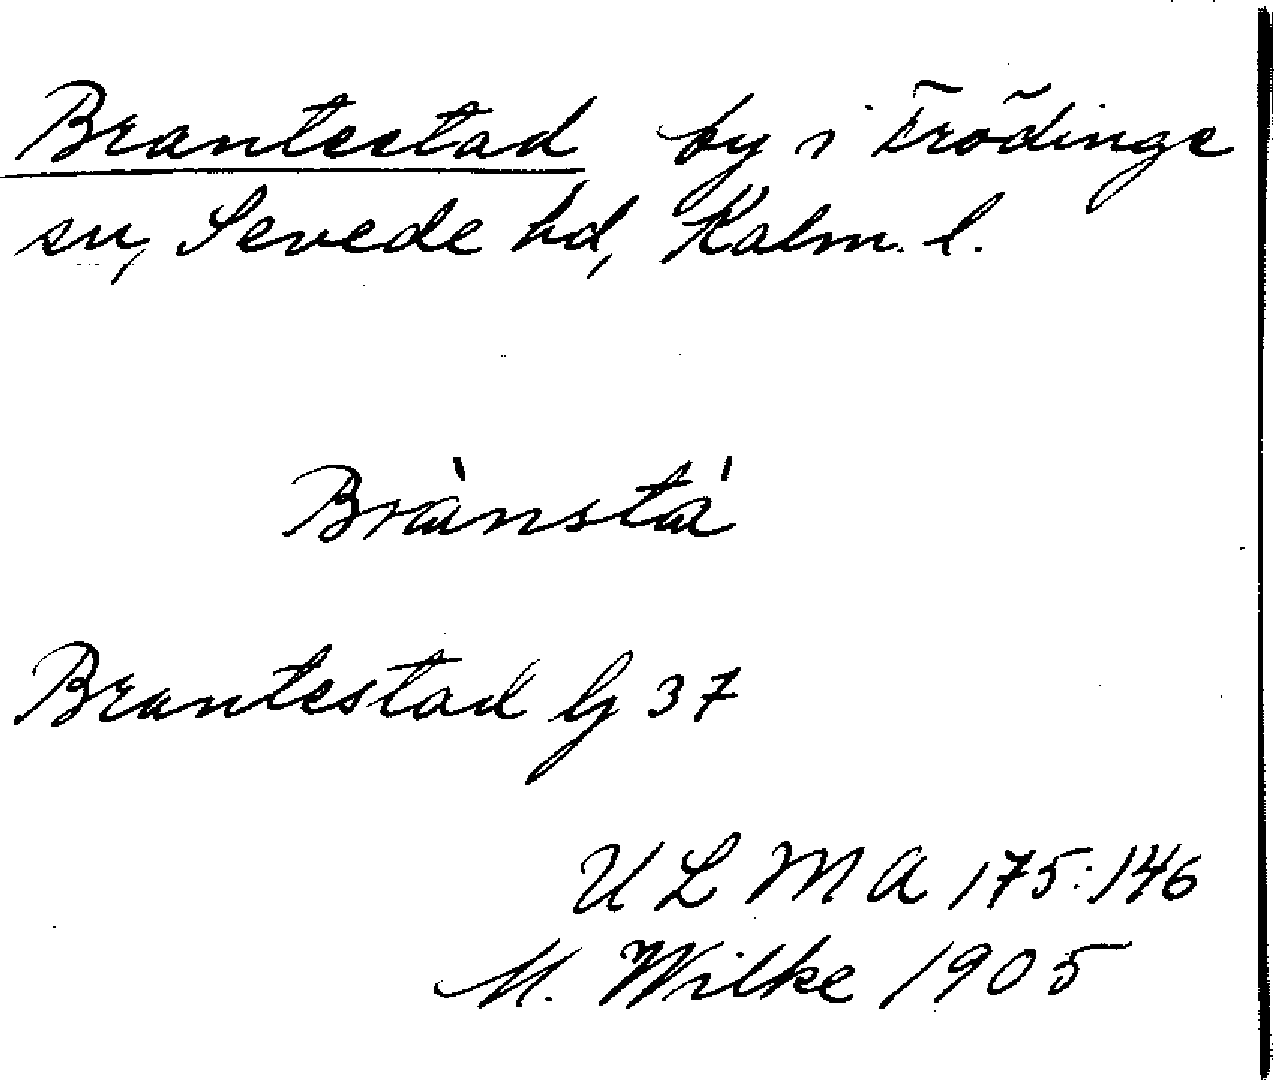 Brantestad by i Frödinge
sn, Sevede hd, Kalm. l.
Brànstá
Brantestad lg 37
ULMA 175:146
M. Wilke 1905